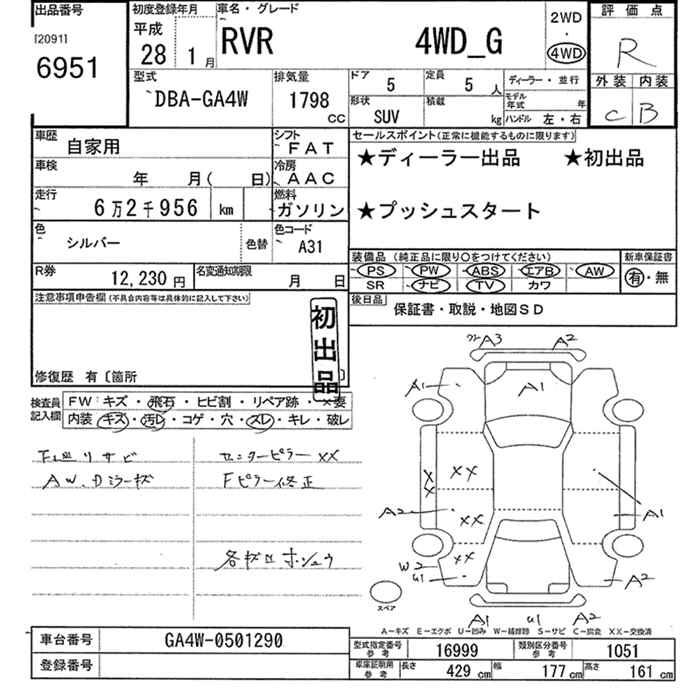 出品番号
[2091]
6951
初度登録年月
平成
28 1月
車名・グレード
RVR 4WD_G
2WD
・
4WD
評価点
R
外装 内装
C B
型式
DBA-GA4W
排気量
1798
CC
ドア
5
定員
5
人
形状
SUV
積載
kg
ディーラー・並行
モデル年式 年
ハンドル 左・右
車歴
自家用
シフト
FAT
車検
年 月( 日)
冷房
AAC
走行
6万2千956 km
燃料
ガソリン
色
シルバー
色替
色コード
A31
R券
12,230円
名変通知期限
月 日
セールスポイント(正常に機能するものに限ります)
★ディーラー出品 ★初出品
★プッシュスタート
装備品(純正品に限り○をつけてください)
新車保証書
PS PW ABS エアB AW
SR ナビ TV カワ
有・無
後日品
保証書・取説・地図SD
注意事項申告欄(不具合内容等は具体的に記入して下さい)
初出品
修復歴 有〔箇所 〕
検査員記入欄
FW:キズ・飛石・ヒビ割・リペア跡・X要
内装 キズ・汚レ・コゲ・穴・スレ・キレ・破レ
下廻リサビ
AW、Dミラーキズ
センターピラーXX
Fピラー修正
各キズ凹ホシュウ
A3 A2
A1 A1
XX
X
X
A2 XX A1
W2 XX
U1 A2
スペア
A1 U1 A2
A-キズ E-エクボ U-凹み W-補修跡 S-サビ C-腐食 XX-交換済
車台番号
GA4W-0501290
登録番号
型式指定番号
参考
16999
類別区分番号
参考
1051
車庫証明用
参考
長さ 429 cm
幅 177 cm
高さ 161 cm